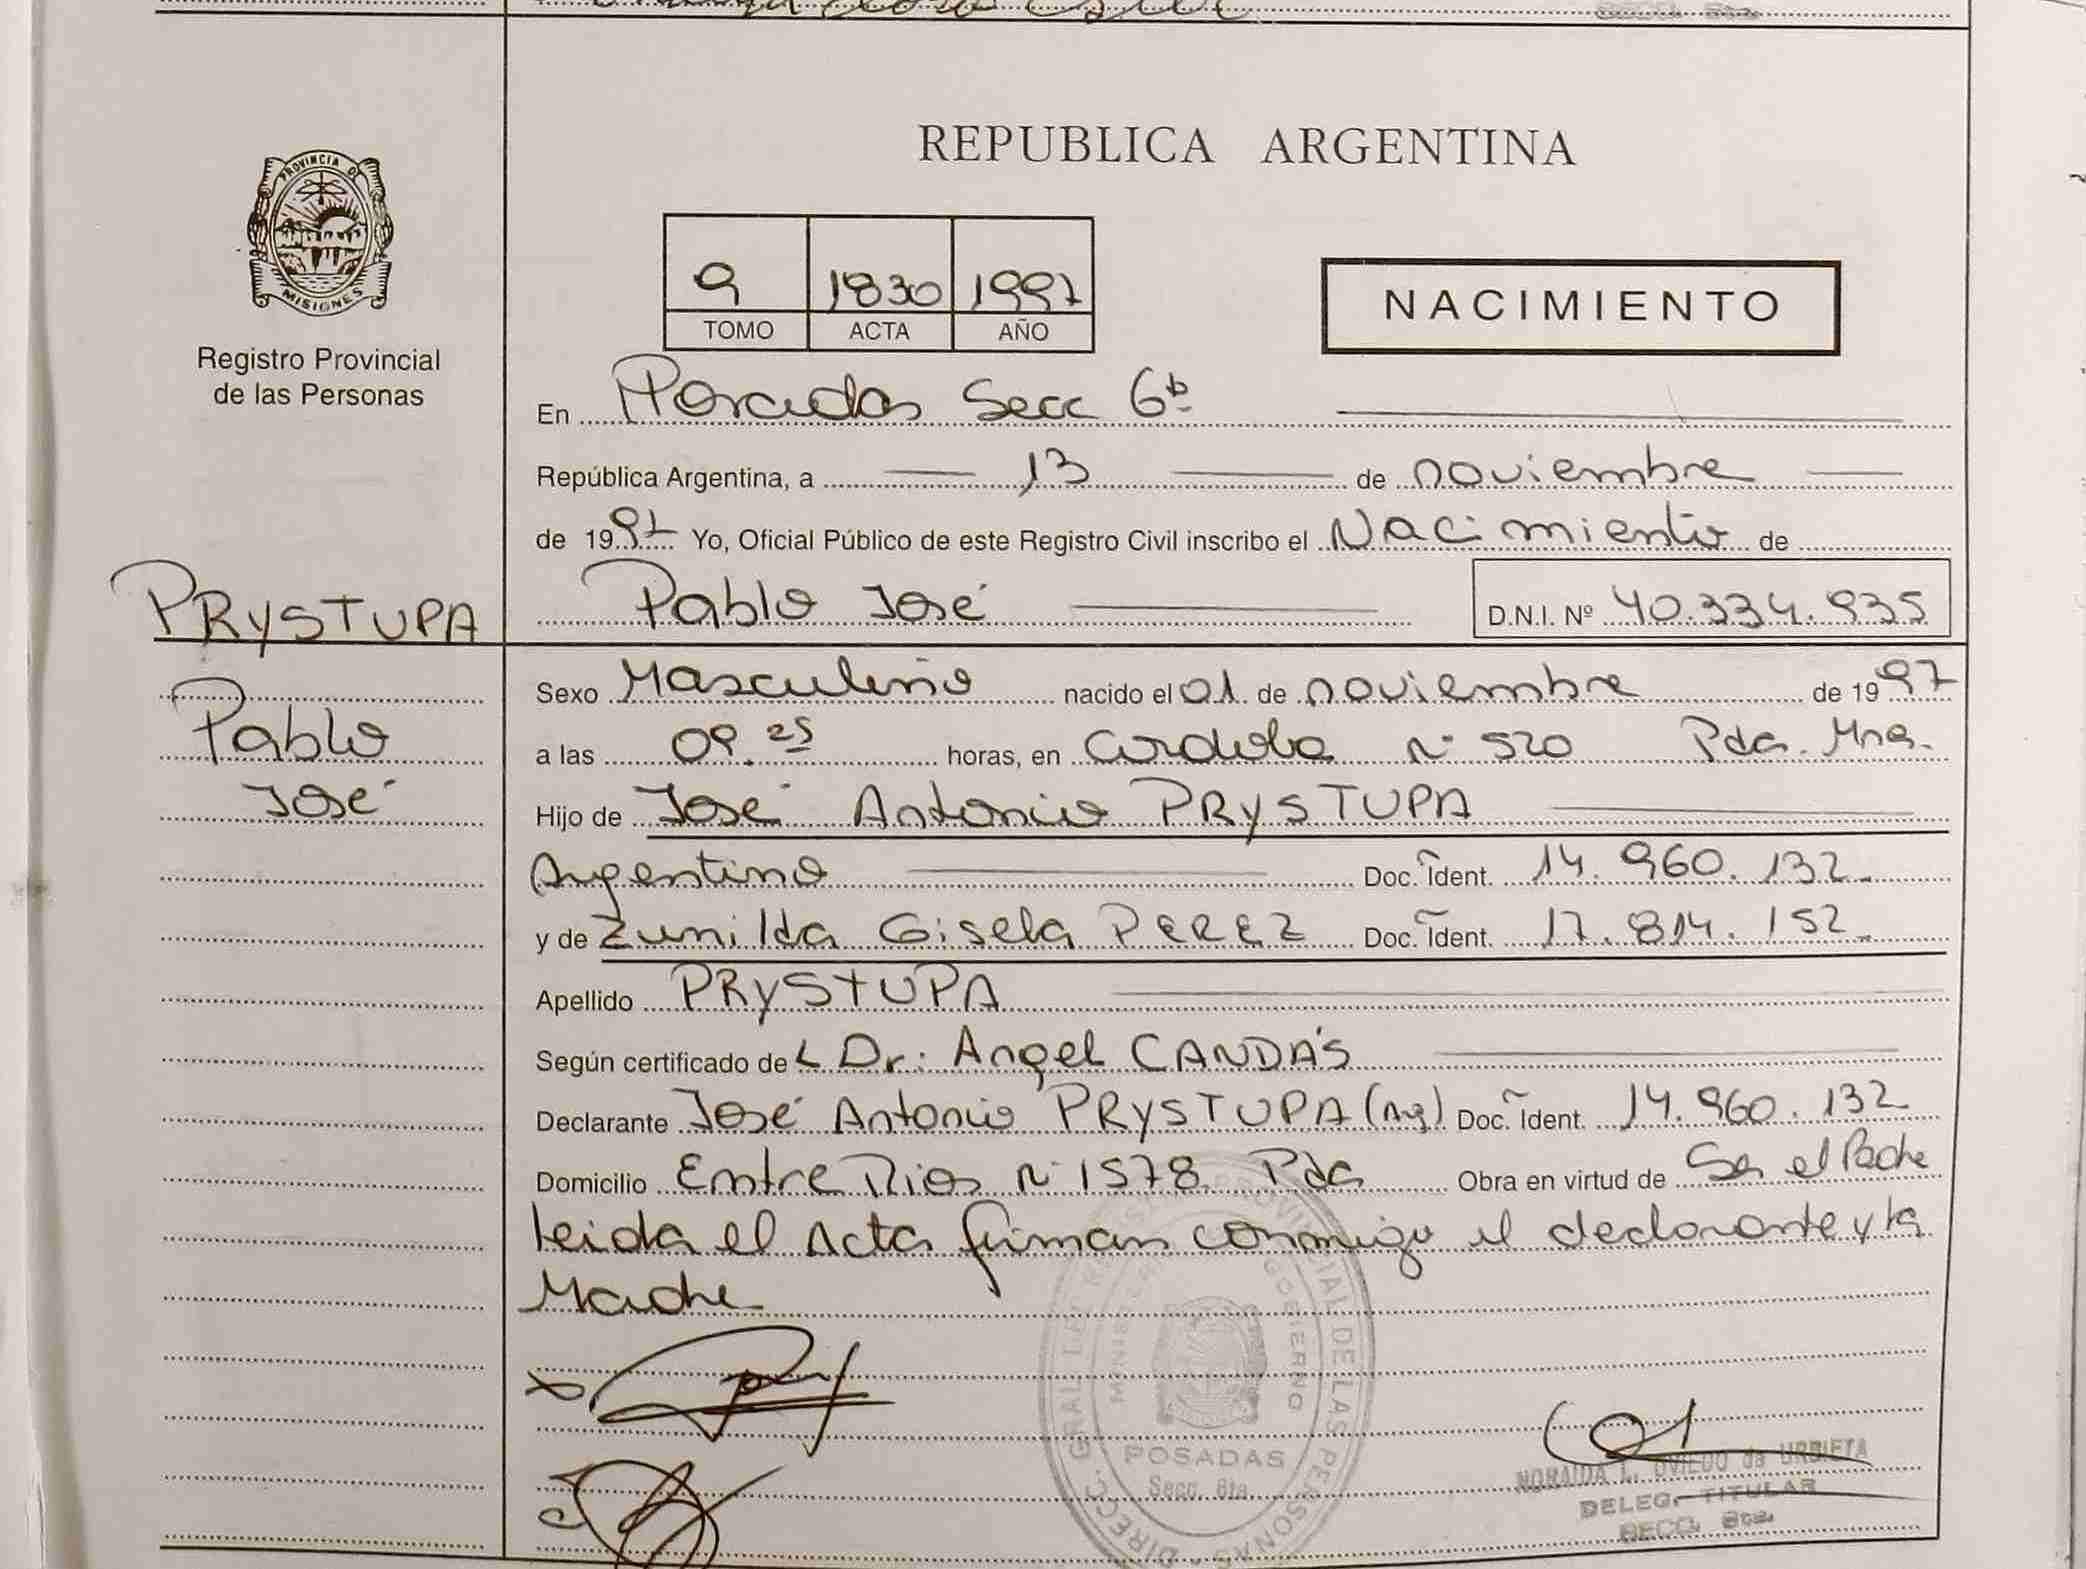 REPUBLICA ARGENTINA
PROVINCIA DE
MISIONES
Registro Provincial
de las Personas
9 1830 1997
TOMO ACTA AÑO
NACIMIENTO
En Posadas Secc 6ta
República Argentina, a 13 de noviembre
de 1997 Yo, Oficial Público de este Registro Civil inscribo el Nacimiento de
PRYSTUPA
Pablo José D.N.I. Nº 40.334.935
Pablo
José
Sexo Masculino nacido el 01 de noviembre de 1997
a las 09.25 horas, en Cordoba Nº 520 Pdas. Mnes.
Hijo de José Antonio PRYSTUPA
Argentino Doc. Ident. 14.960.132
y de Zunilda Gisela PEREZ Doc. Ident. 17.814.152
Apellido PRYSTUPA
Según certificado de L Dr: Angel CANDÁS
Declarante José Antonio PRYSTUPA (Arg) Doc. Ident. 14.960.132
Domicilio Entre Rios Nº 1578 Pdas Obra en virtud de Ser el Padre
Leida el Acta firman conmigo el declarante y la
Madre
DIRECC. GRAL. DEL REGISTRO PROVINCIAL DE LAS PERSONAS
MINISTERIO GOBIERNO
POSADAS
Secc. 6ta
NORAIDA L. OVIEDO de URBIETA
DELEG. TITULAR
SECC. 6ta.